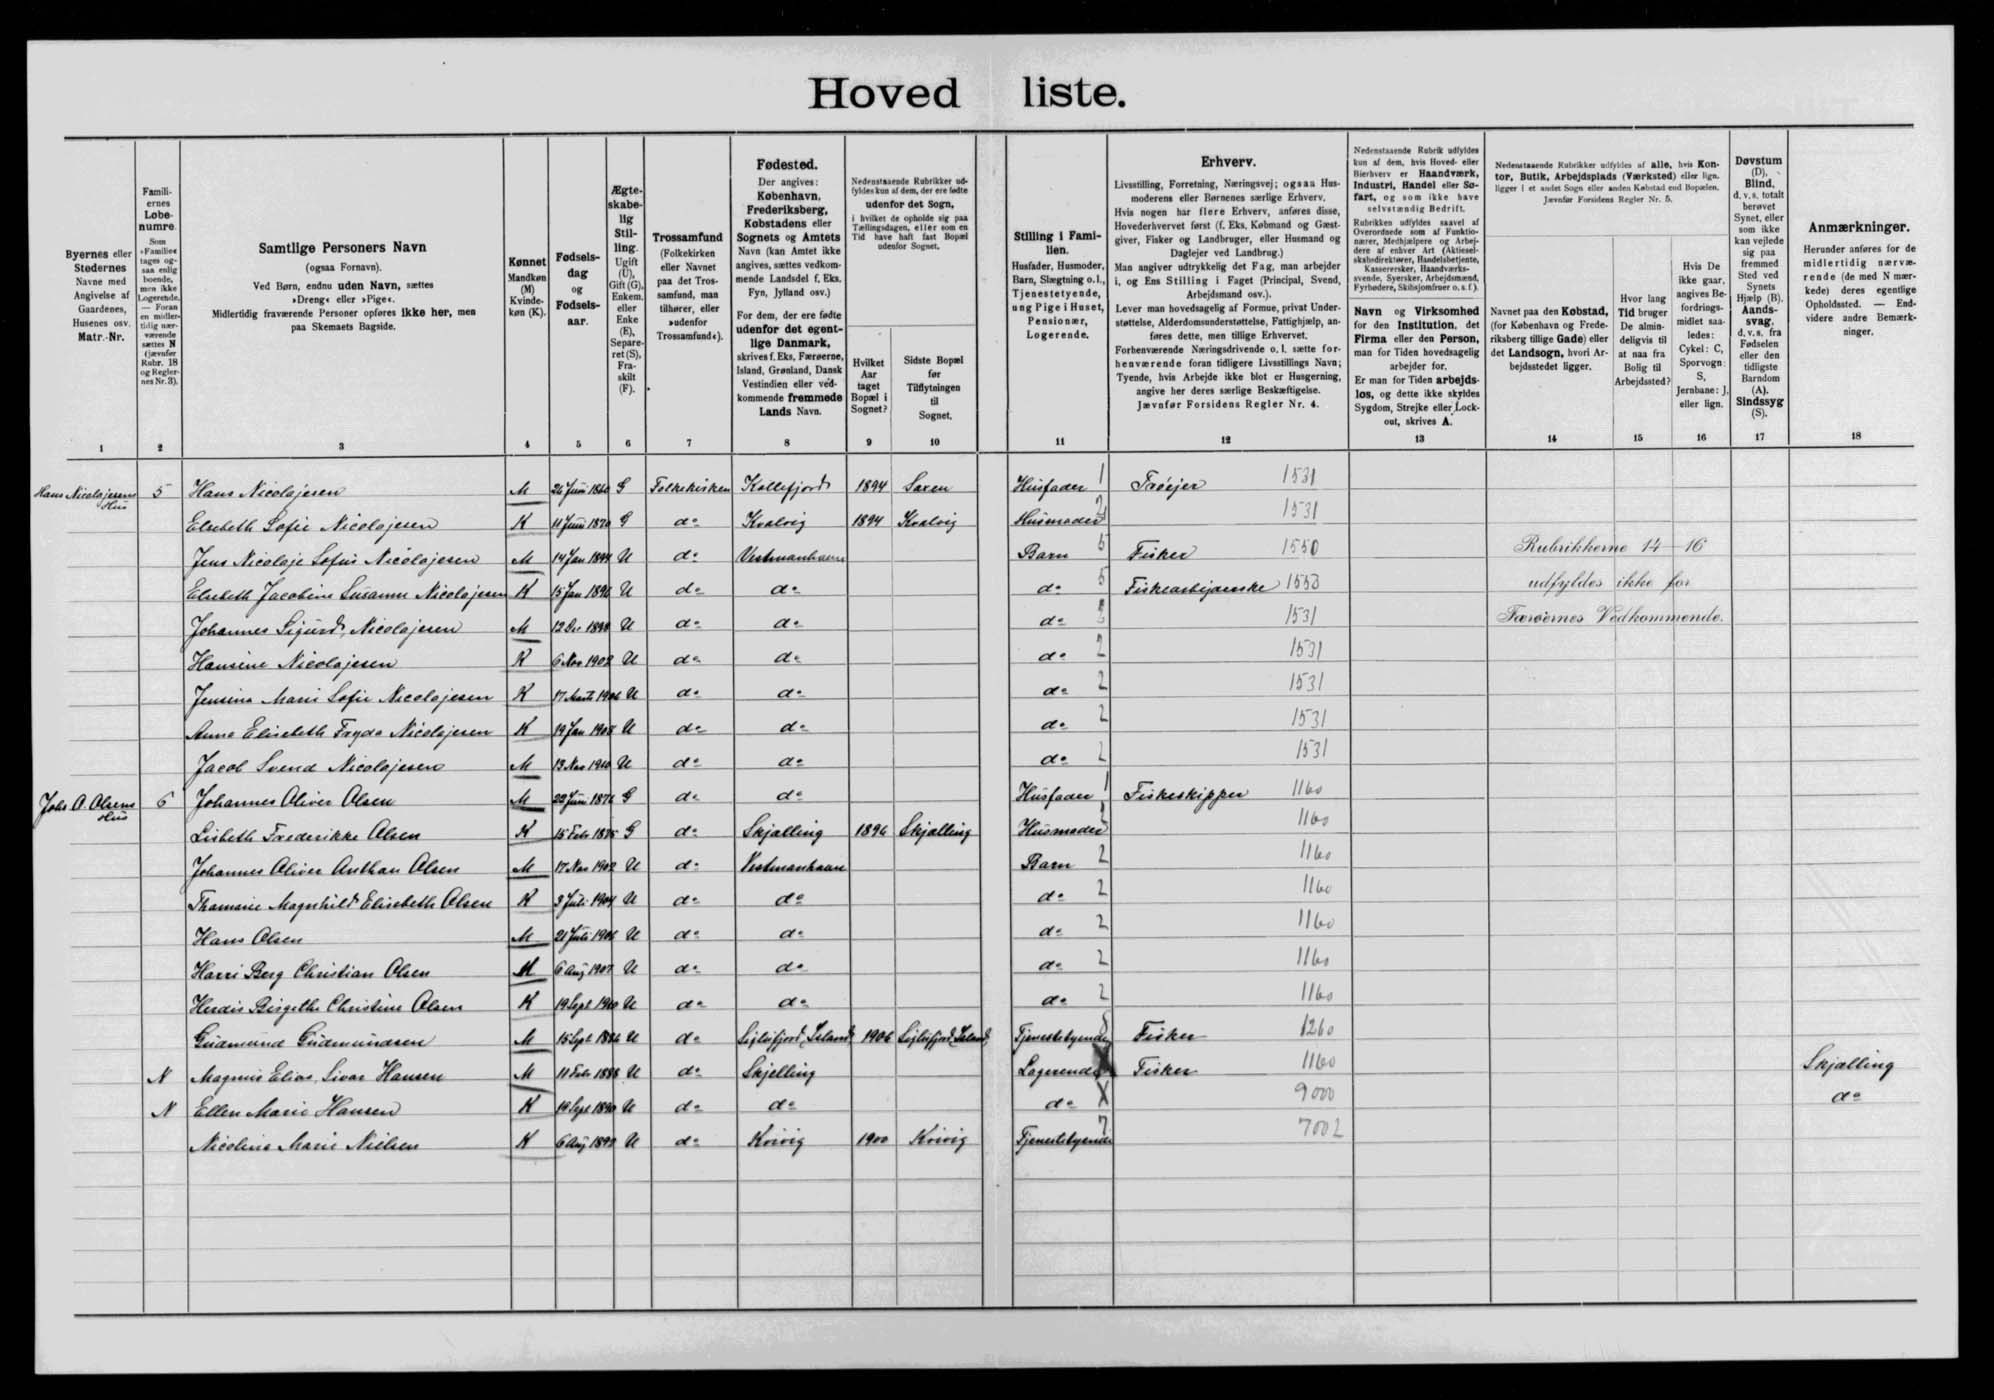 Hovedliste.
Byernes eller
Stedernes
Navne med
Angivelse af
Gaardenes,
Husenes osv.
Matr.-Nr.
Famili-
ernes
Løbe-
numre.
Som
»Familie«
tages og-
saa enlig
boende,
men ikke
Logerende.
— Foran
en midler-
tidig nær-
værende
sættes N
(jævnfør
Rubr. 18
og Regler-
nes Nr. 3).
Samtlige Personers Navn
(ogsaa Fornavn).
Ved Børn, endnu uden Navn, sættes
»Dreng« eller »Pige«.
Midlertidig fraværende Personer opføres ikke her, men
paa Skemaets Bagside.
Kønnet
Mandkøn
(M)
Kvinde-
køn (K).
Fødsels-
dag
og
Fødsels-
aar.
Ægte-
skabe-
lig
Stil-
ling.
Ugift
(U),
Gift (G),
Enkem.
eller
Enke
(E),
Separe-
ret (S),
Fra-
skilt
(F).
Trossamfund
(Folkekirken
eller Navnet
paa det Tros-
samfund, man
tilhører, eller
»udenfor
Trossamfund«).
Fødested.
Der angives:
København,
Frederiksberg,
Købstadens eller
Sognets og Amtets
Navn (kan Amtet ikke
angives, sættes vedkom-
mende Landsdel f. Eks.
Fyn, Jylland osv.)
For dem, der ere fødte
udenfor det egent-
lige Danmark,
skrives f. Eks. Færøerne,
Island, Grønland, Dansk
Vestindien eller ved-
kommende fremmede
Lands Navn.
Nedenstaaende Rubrikker ud-
fyldes kun af dem, der ere fødte
udenfor det Sogn,
i hvilket de opholde sig paa
Tællingsdagen, eller som en
Tid have haft fast Bopæl
udenfor Sognet.
Hvilket
Aar
taget
Bopæl i
Sognet?
Sidste Bopæl
før
Tilflytningen
til
Sognet.
Stilling i Fami-
lien.
Husfader, Husmoder,
Barn, Slægtning o. l.,
Tjenestetyende,
ung Pige i Huset,
Pensionær,
Logerende.
Erhverv.
Livsstilling, Forretning, Næringsvej; ogsaa Hus-
moderens eller Børnenes særlige Erhverv.
Hvis nogen har flere Erhverv, anføres disse,
Hovederhvervet først (f. Eks. Købmand og Gæst-
giver, Fisker og Landbruger, eller Husmand og
Daglejer ved Landbrug.)
Man angiver udtrykkelig det Fag, man arbejder
i, og Ens Stilling i Faget (Principal, Svend,
Arbejdsmand osv.).
Lever man hovedsagelig af Formue, privat Under-
støttelse, Alderdomsunderstøttelse, Fattighjælp, an-
føres dette, men tillige Erhvervet.
Forhenværende Næringsdrivende o. l. sætte for-
henværende foran tidligere Livsstillings Navn;
Tyende, hvis Arbejde ikke blot er Husgerning,
angive her deres særlige Beskæftigelse.
Jævnfør Forsidens Regler Nr. 4.
Nedenstaaende Rubrik udfyldes
kun af dem, hvis Hoved- eller
Bierhverv er Haandværk,
Industri, Handel eller Sø-
fart, og som ikke have
selvstændig Bedrift.
Rubrikken udfyldes saavel af
Overordnede som af Funktio-
nærer, Medhjælpere og Arbej-
dere af enhver Art (Aktiesel-
skabsdirektører, Handelsbetjente,
Kasserersker, Haandværks-
svende, Syersker, Arbejdsmænd,
Fyrbødere, Skibsjomfruer o. s. f.).
Navn og Virksomhed
for den Institution, det
Firma eller den Person,
man for Tiden hovedsagelig
arbejder for.
Er man for Tiden arbejds-
løs, og dette ikke skyldes
Sygdom, Strejke eller Lock-
out, skrives A.
Nedenstaaende Rubrikker udfyldes af alle, hvis Kon-
tor, Butik, Arbejdsplads (Værksted) eller lign.
ligger i et andet Sogn eller anden Købstad end Bopælen.
Jævnfør Forsidens Regler Nr. 5.
Navnet paa den Købstad,
(for København og Frede-
riksberg tillige Gade) eller
det Landsogn, hvori Ar-
bejdsstedet ligger.
Hvor lang
Tid bruger
De almin-
deligvis til
at naa fra
Bolig til
Arbejdssted?
Hvis De
ikke gaar,
angives Be-
fordrings-
midlet saa-
ledes:
Cykel: C,
Sporvogn:
S,
Jernbane: J,
eller lign.
Døvstum
(D),
Blind,
d. v. s. totalt
berøvet
Synet, eller
som ikke
kan vejlede
sig paa
fremmed
Sted ved
Synets
Hjælp (B).
Aands-
svag,
d. v. s. fra
Fødselen
eller den
tidligste
Barndom
(A).
Sindssyg
(S).
Anmærkninger.
Herunder anføres for de
midlertidig nærvæ-
rende (de med N mær-
kede) deres egentlige
Opholdssted. — End-
videre andre Bemærk-
ninger.
1 2 3 4 5 6 7 8 9 10 11 12 13 14 15 16 17 18
Hans Nicolajsens Hus 5 Hans Nicolajsen M 26 Juni 1860 G Folkekirken Kollefjord 1894 Saxen Husfader 1 Trøejer 1531
Elsebeth Sofie Nicolajsen K 11 Juni 1870 G do Kvalvig 1894 Kvalvig Husmoder 2 1531
Jens Nicolaje Sofus Nicolajsen M 14 Jan 1894 U do Vestmanhavn Barn 5 Fisker 1550 Rubrikkerne 14-16
Elsebeth Jacobine Susanne Nicolajsen K 15 Jan 1896 U do do do 5 Fiskearbejderske 1553 udfyldes ikke for
Johannes Sigurd Nicolajsen M 12 De 1899 U do do do 2 1531 Færøernes Vedkommende.
Hansine Nicolajsen K 6 Nov 1902 U do do do 2 1531
Jensina Marie Sofie Nicolajsen K 17 Marts 1906 U do do do 2 1531
Anna Elisebeth Fryda Nicolajsen K 19 Jan 1908 U do do do 2 1531
Jacob Svend Nicolajsen M 13 Nov 1910 U do do do 2 1531
Johs O. Olsens Hus 6 Johannes Oliver Olsen M 22 Juni 1876 G do do Husfader 1 Fiskeskipper 1160
Lisbeth Frederikke Olsen K 15 Febr 1875 G do Skjælling 1896 Skjælling Husmoder 2 1160
Johannes Oliver Anthon Olsen M 17 Nov 1902 U do Vestmanhavn Barn 2 1160
Thamarie Magnhild Elisebeth Olsen K 3 Juli 1904 U do do do 2 1160
Hans Olsen M 21 Juli 1906 U do do do 2 1160
Harri Berg Christian Olsen M 6 Aug 1907 U do do do 2 1160
Herdis Birgethe Christine Olsen K 19 Sept 1910 U do do do 2 1160
Gudmund Gudmundsen M 15 Sept 1886 U do Siglufjord, Island 1906 Siglufjord, Island, Tjenestetyende 5 Fisker 1260
N Magnus Elias Sivar Hansen M 11 Febr 1888 U do Skjelling Logerende X Fisker 1160 Skjælling
N Ellen Marie Hansen K 19 Sept 1890 U do do do X 9000 do
Nicolina Marie Nielsen K 6 Aug 1890 U do Kvivig 1900 Kvivig Tjenestetyende 7 7002